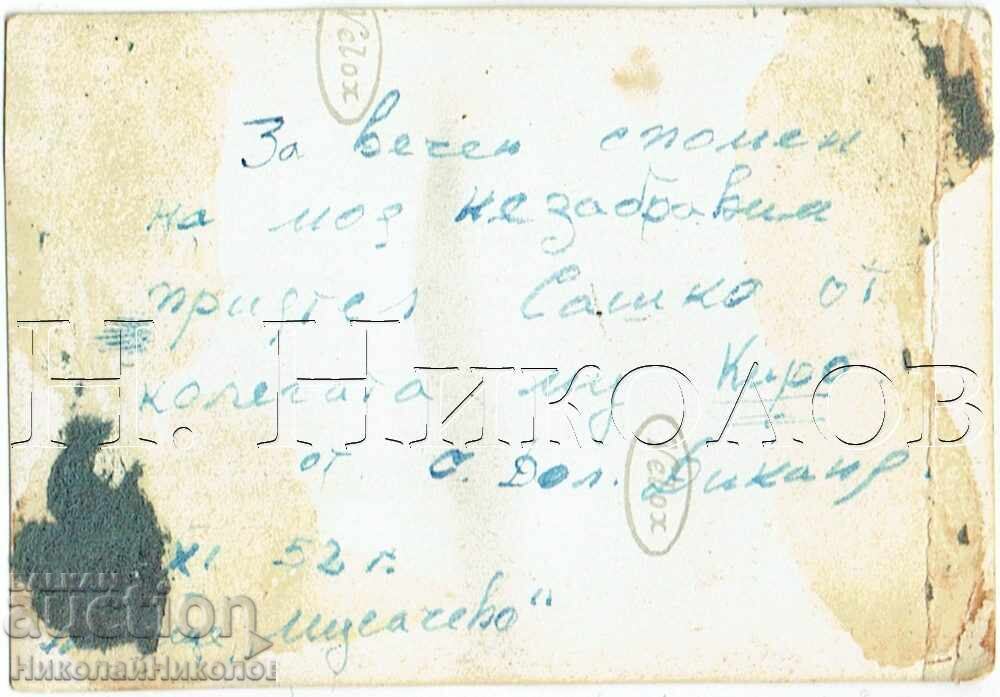 Velox
За вечен спомен
на моя незабравим
приятел Сашко от
колегата му Киро
от с. Дол. Диканя.
Velox
XI 52 г.
Мусачево"
Н. Николов
auction
НиколайНиколов